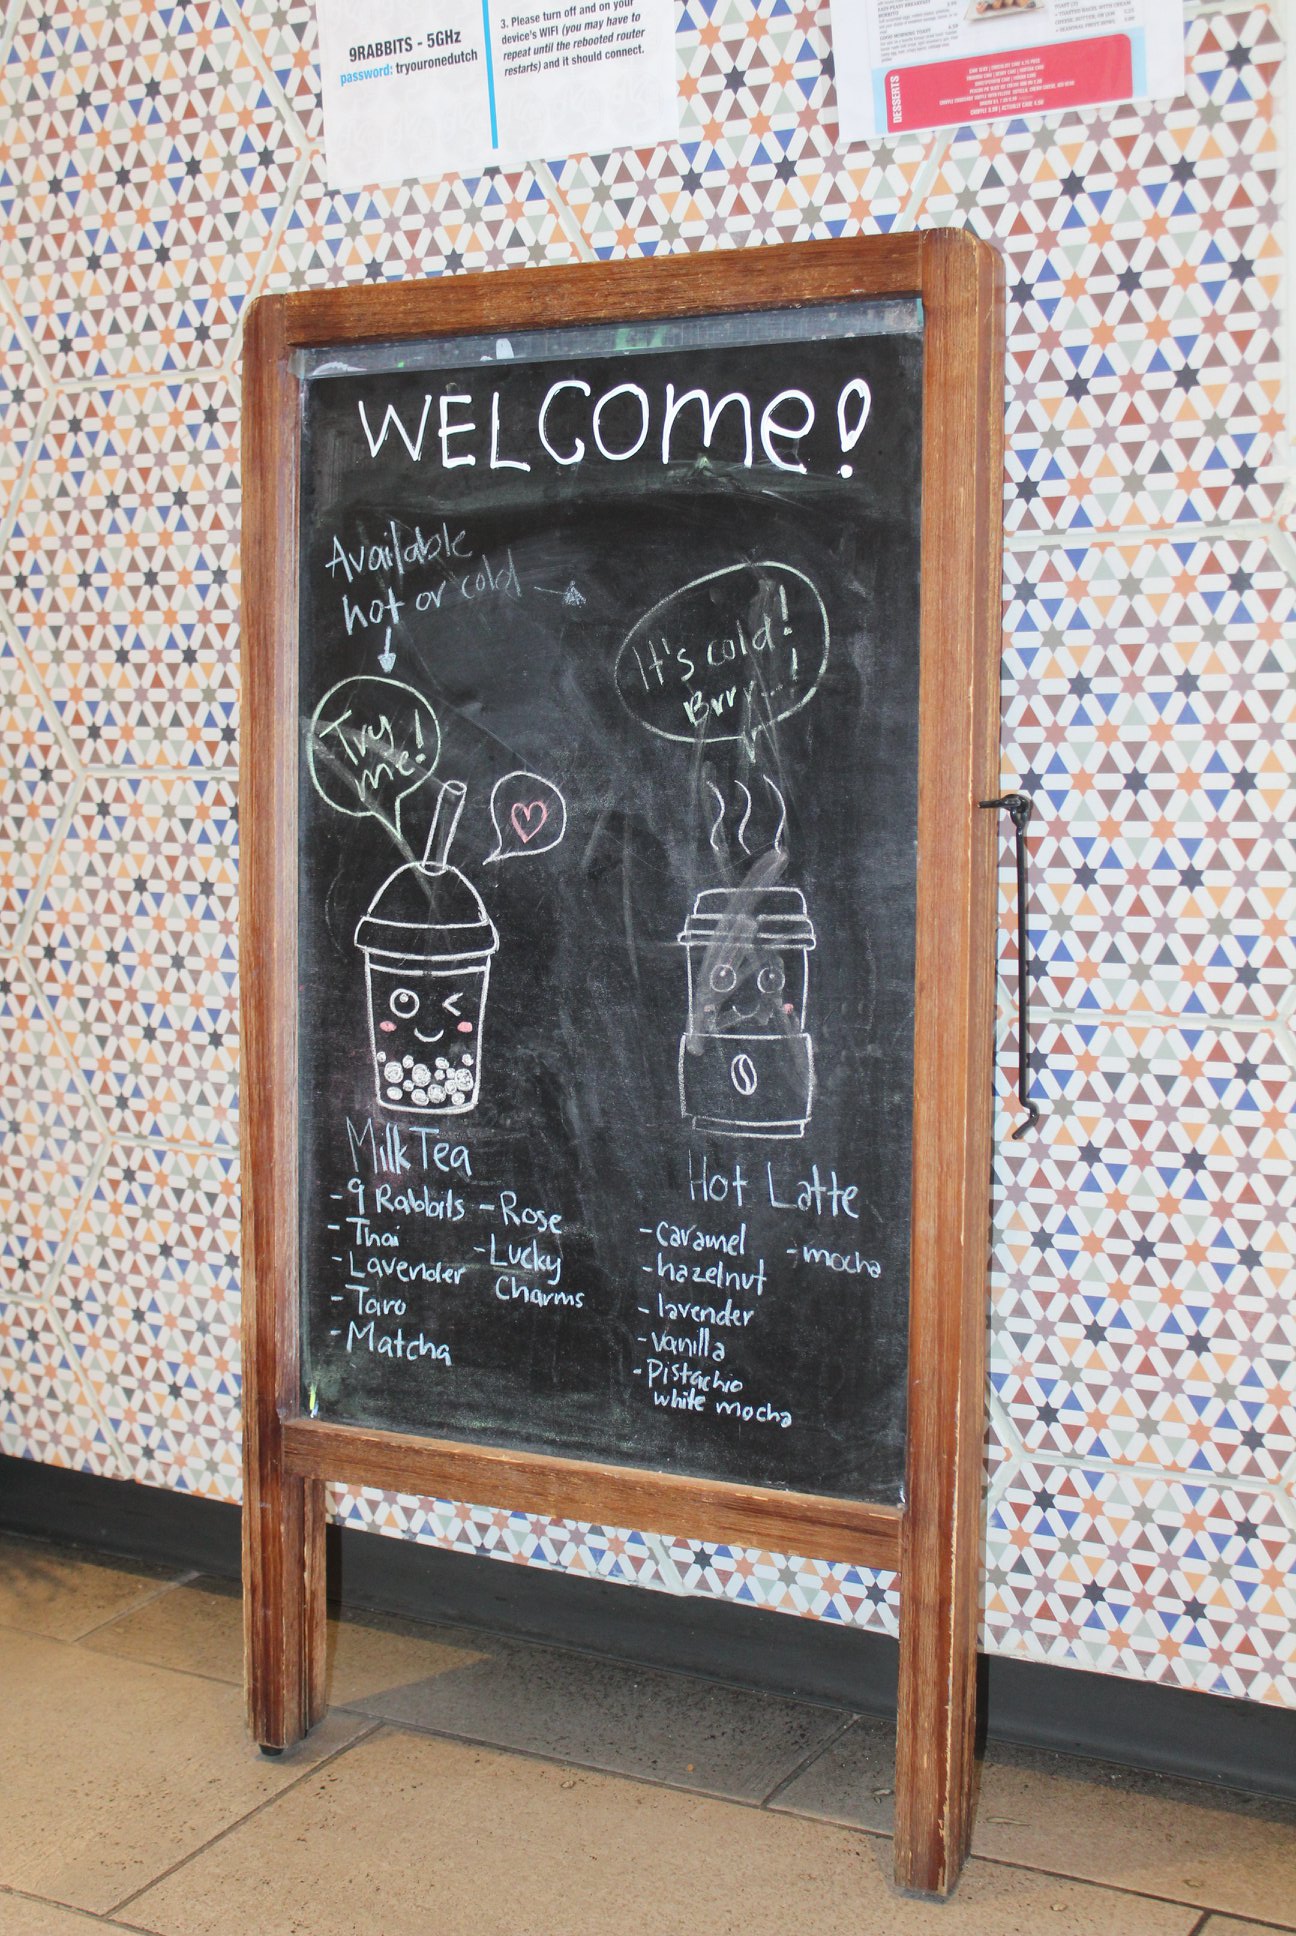 9RABBITS - 5GHz
password: tryouronedutch
3. Please turn off and on your
device's WIFI (you may have to
repeat until the rebooted router
restarts) and it should connect.
DESSERTS
WELCOME!
Available
hot or cold
Try
me!
It's cold!
Brry...!
Milk Tea
- 9 Rabbits
- Thai
- Lavender
- Taro
- Matcha
- Rose
- Lucky
Charms
Hot Latte
- caramel
- hazelnut
- lavender
- vanilla
- Pistachio
white mocha
- mocha